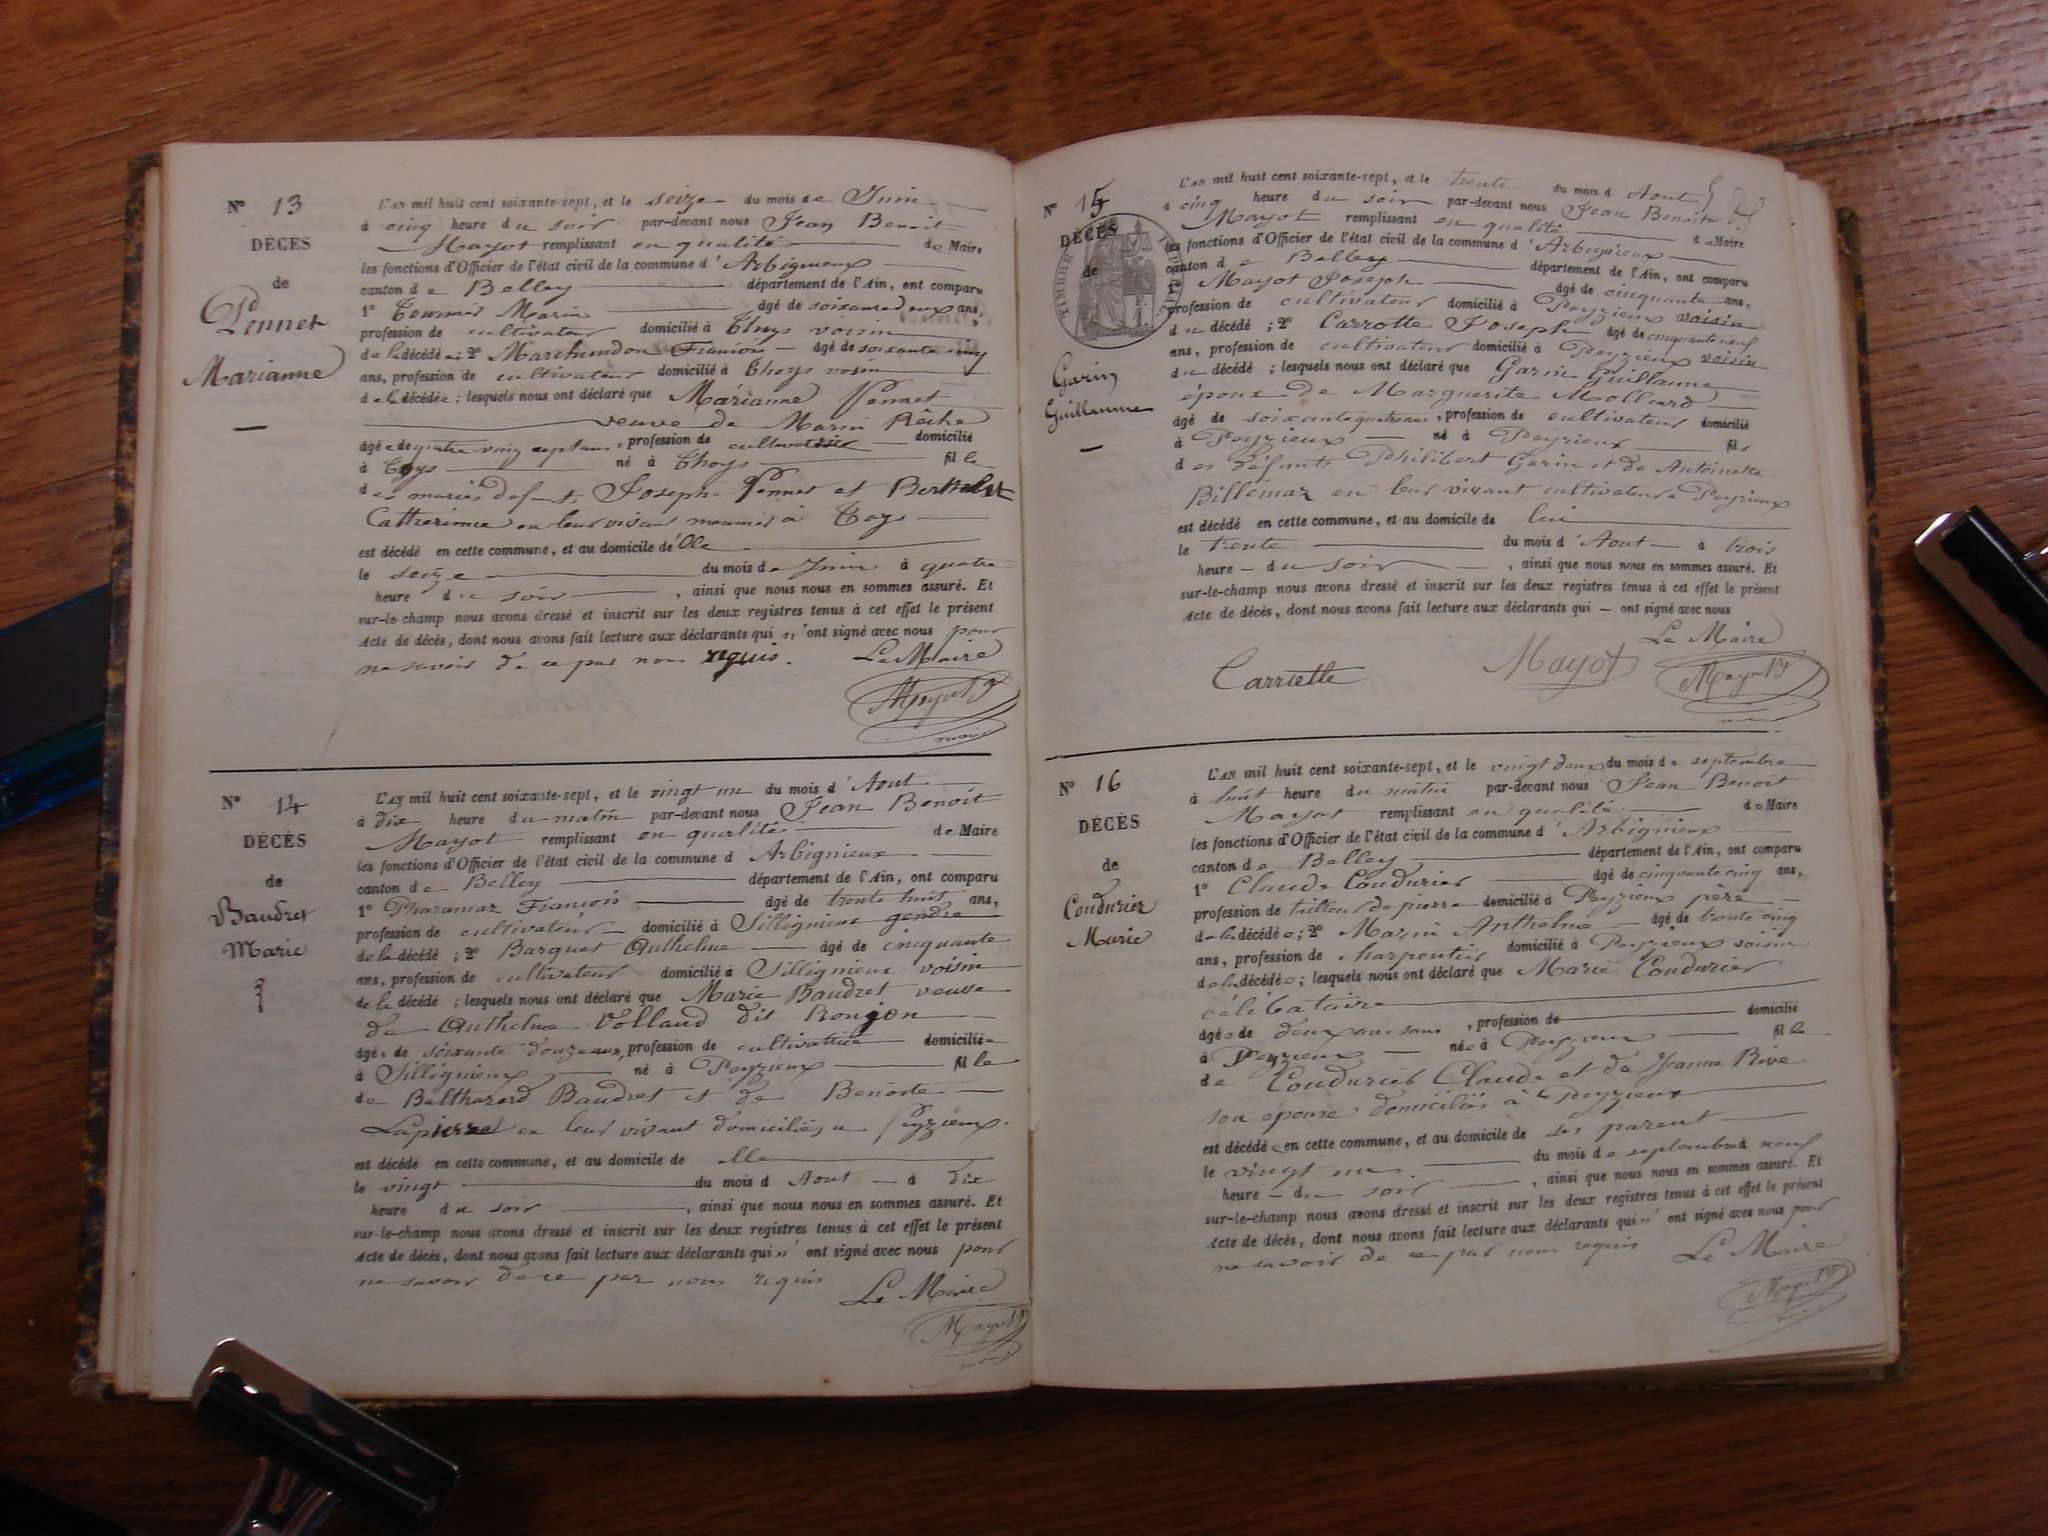 N° 13
DÉCÈS
de
Pennet
Marianne
L'AN mil huit cent soixante-sept, et le seize du mois de Juin
à cinq heure du soir par-devant nous Jean Benoit
Mayot remplissant en qualité de Maire
les fonctions d'Officier de l'état civil de la commune d'Arbignieux
canton de Belley département de l'Ain, ont comparu
1° Marin âgé de soixante deux ans,
profession de cultivateur domicilié à Thoys voisin
de la décédée; 2° Marchandon François âgé de soixante cinq
ans, profession de cultivateur domicilié à Thoys voisin
de la décédée; lesquels nous ont déclaré que Marianne Pennet
veuve de Marin Rôche
âgée de quatre vingt sept ans, profession de cultivatrice domicilié
à Thoys né à Thoys fille
des mariés defunt Joseph Pennet et Berthelet
Catherinne en leur vivant meunier à Toys
est décédé en cette commune, et au domicile de Elle
le seize du mois de Juin à quatre
heure du soir, ainsi que nous nous en sommes assuré. Et
sur-le-champ nous avons dressé et inscrit sur les deux registres tenus à cet effet le présent
Acte de décès, dont nous avons fait lecture aux déclarants qui n'ont signé avec nous pour
ne savoir de ce par nous requis. Le Maire
Mayot
N° 14
DÉCÈS
de
Baudret
Marie
L'AN mil huit cent soixante-sept, et le vingt un du mois d'Aout
à dix heure du matin par-devant nous Jean Benoit
Mayot remplissant en qualité de Maire
les fonctions d'Officier de l'état civil de la commune d Arbignieux
canton de Belley département de l'Ain, ont comparu
1° Pharamaz François âgé de trente huit ans,
profession de cultivateur domicilié à Sillignieux gendre
de la décédé; 2° Barquet Anthelme âgé de cinquante
ans, profession de cultivateur domicilié à Sillignieux voisin
de la décédé; lesquels nous ont déclaré que Marie Baudret veuve
de Anthelme Volland dit Ronjon
âgée de soixante douze ans, profession de cultivatrice domiciliée
à Sillignieux né à Peyzieux fille
de Balthazard Baudret et de Benoite
Lapierre en leur vivant domiciliés a Peyzieux.
est décédé en cette commune, et au domicile de elle
le vingt du mois d Aout à dix
heure du soir, ainsi que nous nous en sommes assuré. Et
sur-le-champ nous avons dressé et inscrit sur les deux registres tenus à cet effet le présent
Acte de décès, dont nous avons fait lecture aux déclarants qui n'ont signé avec nous pour
ne savoir de ce par nous requis Le Maire
Mayot
N° 15
DÉCÈS
de
Garin
Guillaume
L'AN mil huit cent soixante-sept, et le trente du mois d Aout
à cinq heure du soir par-devant nous Jean Benoit
Mayot remplissant en qualité de Maire
les fonctions d'Officier de l'état civil de la commune d'Arbignieux
canton de Belley département de l'Ain, ont comparu
1° Mayot Joseph âgé de cinquante ans,
profession de cultivateur domicilié à Peyzieux voisin
du décédé; 2° Carrotte Joseph âgé de cinquante neuf
ans, profession de cultivateur domicilié à Peyzieux voisin
du décédé; lesquels nous ont déclaré que Garin Guillaume
époux de Marguerite Mollard
âgé de soixante quatre ans, profession de cultivateur domicilié
à Peyzieux né à Peyzieux fils
des défunts Philibert Garin et de Antoinette
Billémaz en leur vivant cultivateurs a Peyzieux
est décédé en cette commune, et au domicile de lui
le trente du mois d'Aout à trois
heure du soir, ainsi que nous nous en sommes assuré. Et
sur-le-champ nous avons dressé et inscrit sur les deux registres tenus à cet effet le présent
Acte de décès, dont nous avons fait lecture aux déclarants qui ont signé avec nous
Le Maire
Carriette Mayot Mayot
N° 16
DÉCÈS
de
Coudurier
Marie
L'AN mil huit cent soixante-sept, et le vingt deux du mois de septembre
à huit heure du matin par-devant nous Jean Benoit
Mayot remplissant en qualité de Maire
les fonctions d'Officier de l'état civil de la commune d'Arbignieux
canton de Belley département de l'Ain, ont comparu
1° Claude Coudurier âgé de cinquante cinq ans,
profession de tailleur de pierre domicilié à Peyzieux père
de la décédée; 2° Marin Anthelme âgé de trente cinq
ans, profession de charpentier domicilié à Peyzieux voisin
de la décédée; lesquels nous ont déclaré que Marie Coudurier
célibataire
âgée de deux ans, profession de domicilié
à Peyzieux née à Peyzieux fille
de Coudurier Claude et de Jeanne Rive
son épouse domiciliés à Peyzieux
est décédée en cette commune, et au domicile de ses parent
le vingt un du mois de septembre à neuf
heure du soir, ainsi que nous nous en sommes assuré. Et
sur-le-champ nous avons dressé et inscrit sur les deux registres tenus à cet effet le présent
Acte de décès, dont nous avons fait lecture aux déclarants qui n'ont signé avec nous pour
ne savoir de ce par nous requis Le Maire
Mayot